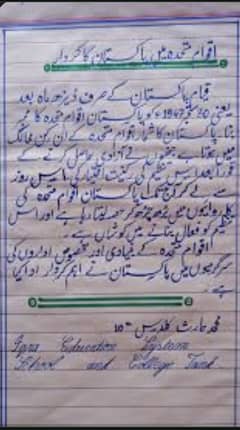 اقوام متحدہ میں پاکستان کا کردار
قیام پاکستان کے صرف ڈیڑھ ماہ بعد
یعنی 30 ستمبر 1947 کو پاکستان اقوام متحدہ کا ممبر
بنا۔ پاکستان کا شمار اقوام متحدہ کے ان رکن ممالک
میں ہوتا ہے جنہوں نے آزادی حاصل کرنے کے
فوراً بعد اس تنظیم کی رکنیت اختیار کی۔ اس روز
سے لے کر آج تک پاکستان اقوام متحدہ کی
کارروائیوں میں بڑھ چڑھ کر حصہ لیتا رہا ہے اور اس
تنظیم کو فعال بنانے میں کوشاں ہے۔
اقوام متحدہ کے بنیادی اور مخصوص اداروں کی
سرگرمیوں میں پاکستان نے اہم کردار ادا کیا
ہے۔
محمد حارث کلاس 10th
Iqra Education System
School and College Tank